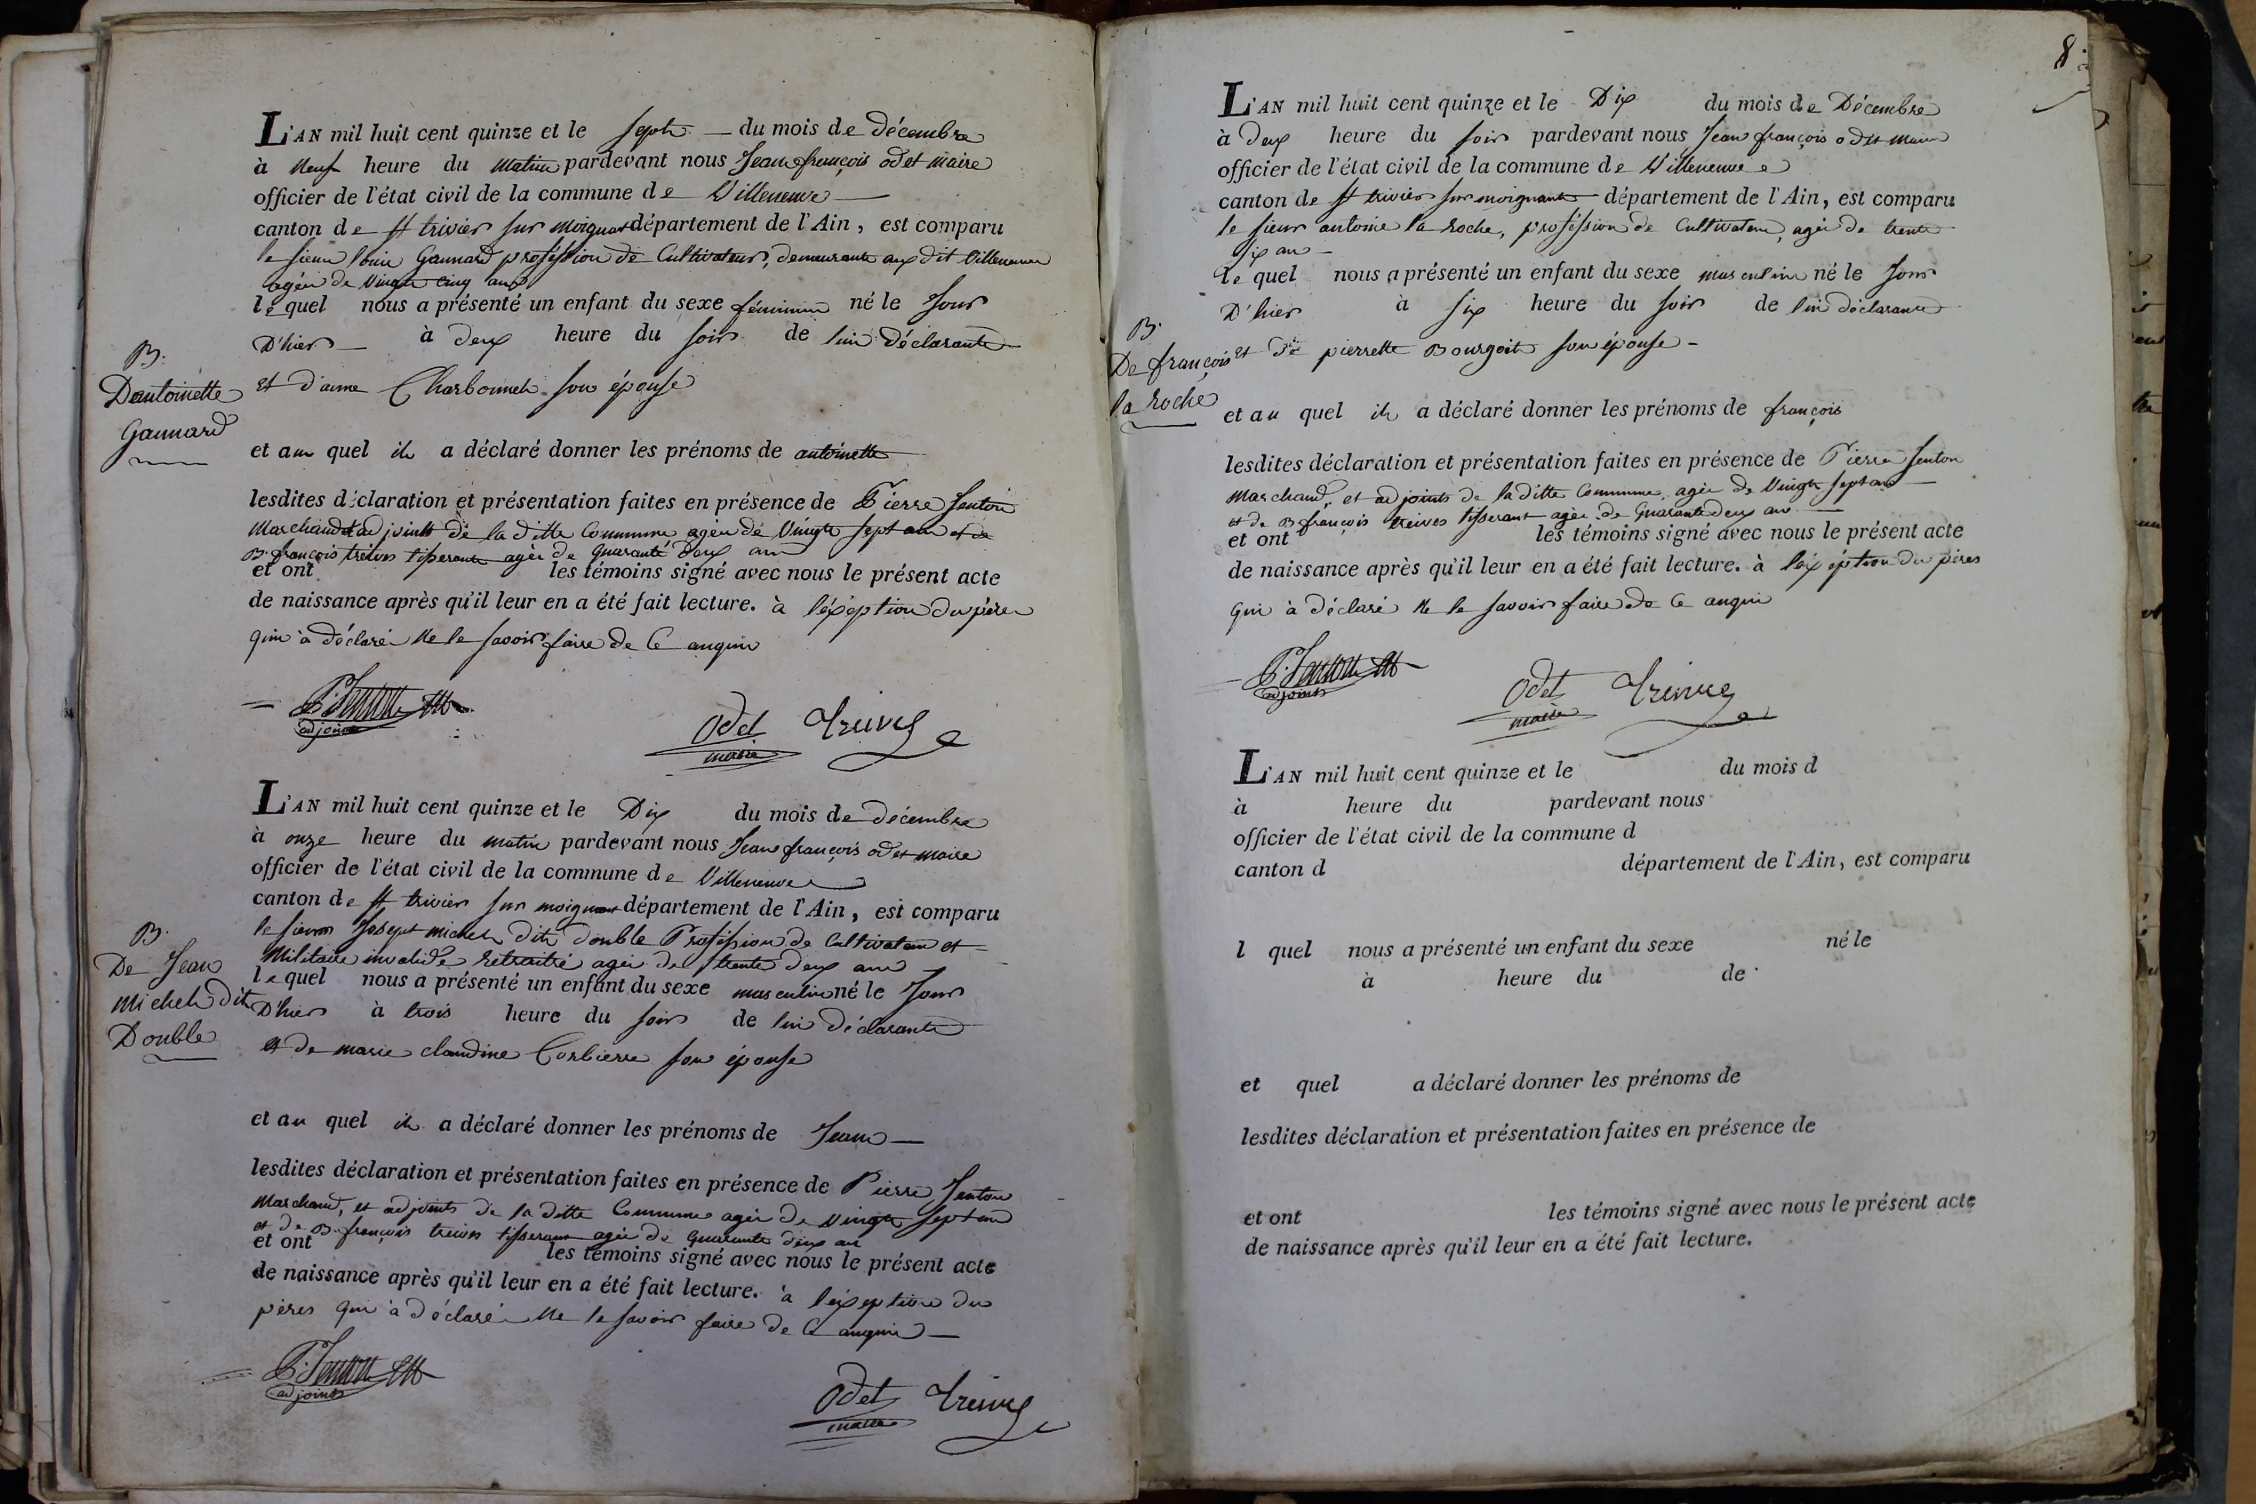 L'AN mil huit cent quinze et le sept du mois de décembre
à neuf heure du matin pardevant nous Jean françois odet maire
officier de l'état civil de la commune de Villeneuve
canton de st trivier sur moignant département de l'Ain, est comparu
le sieur louis Gannard profession de Cultivateur, demeurant aux dit Villeneuve
agée de vingt cinq ans
le quel nous a présenté un enfant du sexe féminin né le Jour
D'hier à deux heure du soir de lui déclarant
B.
Dantoinette
Gannard
et d'anne Charbonnet son épouse
et au quel il a déclaré donner les prénoms de antoinette
lesdites déclaration et présentation faites en présence de Pierre Senton
Marchand et adjoint de la ditte Commune agée de vingt sept ans et de
B. françois treives tisserant agée de quarante deux ans
et ont les témoins signé avec nous le présent acte
de naissance après qu'il leur en a été fait lecture. à l'éxéption du père
qui à déclaré ne le savoir faire de ce anquis
P. Senton
adjoint
Odet
maire
Treives
L'AN mil huit cent quinze et le Dix du mois de décembre
à onze heure du matin pardevant nous Jean françois odet maire
officier de l'état civil de la commune de Villeneuve
canton de st trivier sur moignant département de l'Ain, est comparu
le sieur Josept michel dit double Profession de Cultivateur et
Militaire invalide retraité agée de trente deux ans
le quel nous a présenté un enfant du sexe masculin né le Jour
D'hier à trois heure du soir de lui déclarant
B.
De Jean
Michel dit
Double
et de marie claudine Corbierre son épouse
et au quel il a déclaré donner les prénoms de Jean
lesdites déclaration et présentation faites en présence de Pierre Senton
Marchand, et adjoint de la ditte Commune agée de vingt sept ans
et de B. françois treives tisserant agée de quarante deux an
et ont les témoins signé avec nous le présent acte
de naissance après qu'il leur en a été fait lecture. à l'éxéption du
pères qui à déclaré ne le savoir faire de ce anquis
P. Senton
adjoint
Odet
maire
Treives
8
L'AN mil huit cent quinze et le Dix du mois de Décembre
à deux heure du soir pardevant nous Jean françois odet maire
officier de l'état civil de la commune de Villeneuve
canton de st trivier sur moignant département de l'Ain, est comparu
le sieur antoine la Roche, profession de Cultivateur, agée de trente
six an
le quel nous a présenté un enfant du sexe masculin né le Jour
D'hier à six heure du soir de lui déclarant
B.
De françois
la Roche
et de pierrette Bourgoit son épouse
et au quel il a déclaré donner les prénoms de françois
lesdites déclaration et présentation faites en présence de Pierre Senton
Marchand, et adjoint de la ditte Commune agée de vingt sept ans
et de B. françois treives tisserant agée de quarante deux an
et ont les témoins signé avec nous le présent acte
de naissance après qu'il leur en a été fait lecture. à l'éxéption du pères
qui à déclaré ne le savoir faire de ce anquis
P. Senton
adjoint
Odet
maire
Treives
L'AN mil huit cent quinze et le du mois d
à heure du pardevant nous
officier de l'état civil de la commune d
canton d département de l'Ain, est comparu
l quel nous a présenté un enfant du sexe né le
à heure du de
et quel a déclaré donner les prénoms de
lesdites déclaration et présentation faites en présence de
et ont les témoins signé avec nous le présent acte
de naissance après qu'il leur en a été fait lecture.